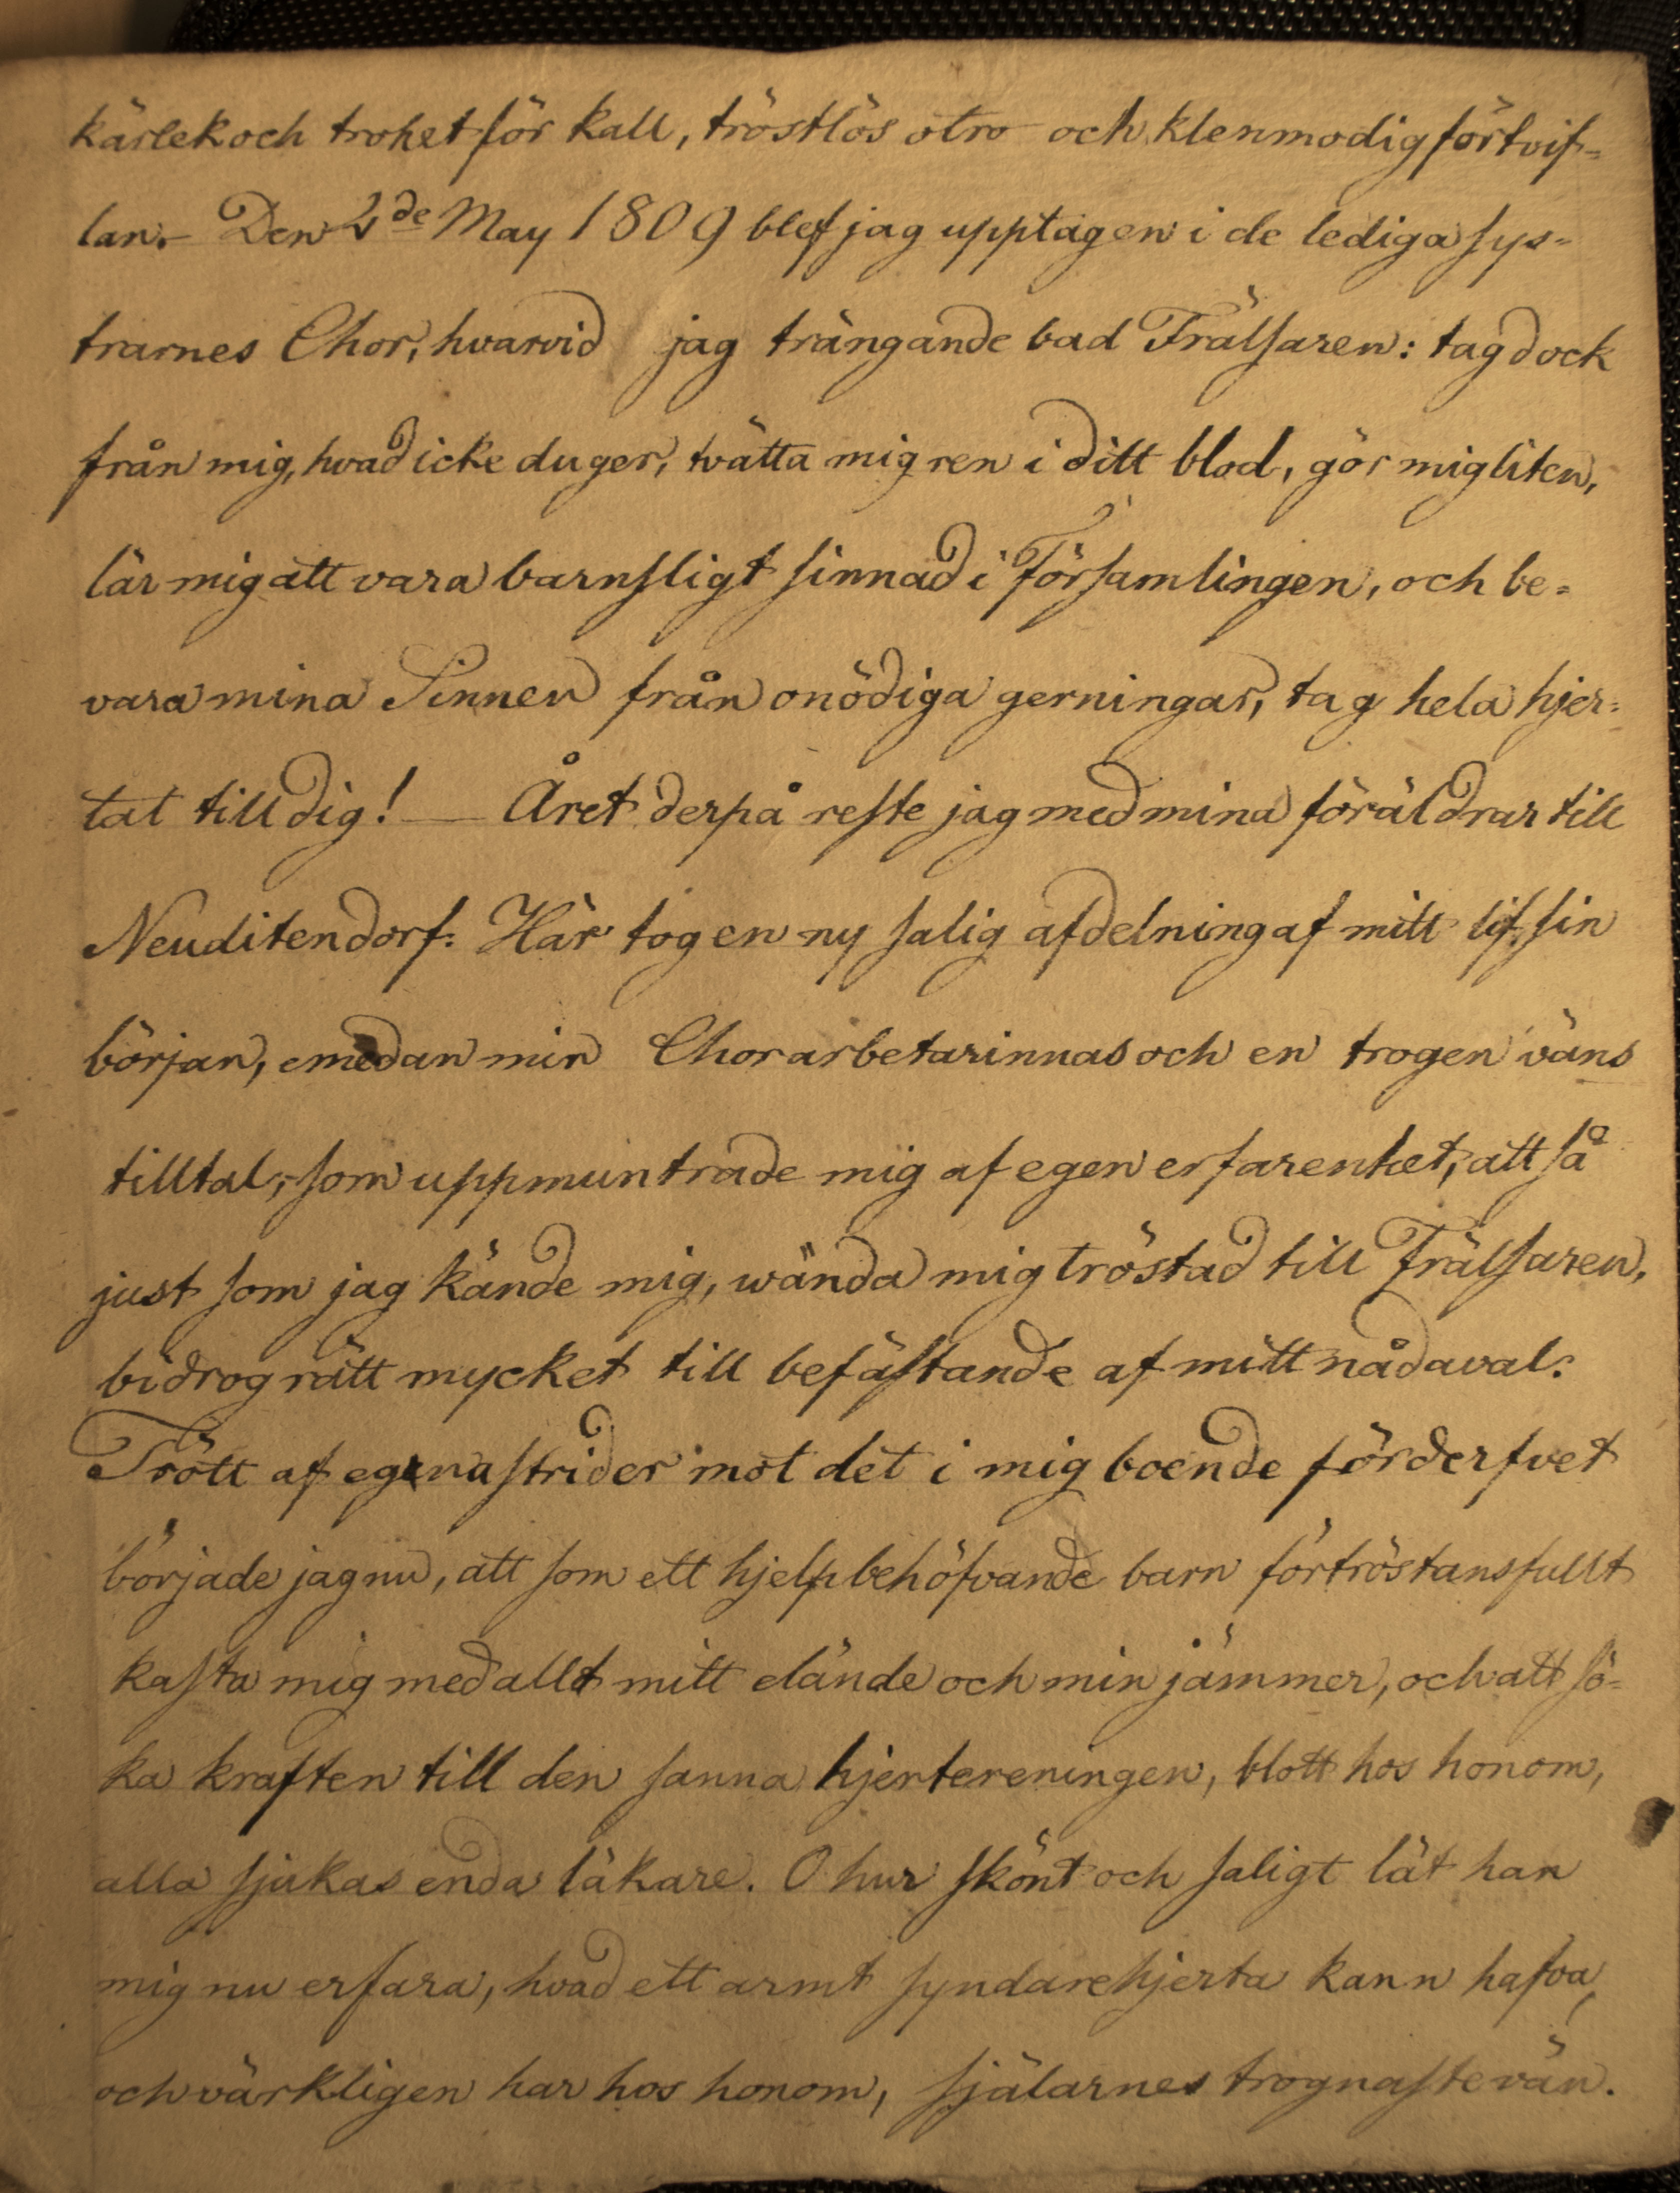 kärlek och trohet för kall, tröstlös otro och klenmodig förtvif=
lan. Den 4de May 1809 blef jag upptagen i de lediga sys=
trarnes Chor, hvarvid jag trängande bad Frälsaren: tag dock
från mig, hvad icke duger, tvätta mig ren i ditt blod, gör mig liten,
lär mig att vara barnsligt sinnad i Församlingen, och be=
vara mina Sinnen från onödiga gerningar, tag hela hjer=
tat till dig! — Året derpå reste jag med mina föräldrar till
Neuditendorf. Här tog en ny salig afdelning af mitt lif, sin
början, emedan min Chorarbetarinnas och en trogen väns
tilltal, som uppmuntrade mig af egen erfarenhet, att så
just som jag kände mig, wända mig tröstad till Frälsaren,
bidrog rätt mycket till befästande af mitt nådaval.
Trött af egna strider mot det i mig boende förderfvet
började jag nu, att som ett hjelpbehöfvande barn förtröstansfullt
kasta mig med allt mitt elände och min jämmer, och att sö=
ka kraften till den sanna hjertereningen, blott hos honom,
alla sjukas enda läkare. O hur skönt och saligt lät han
mig nu erfara, hvad ett armt syndarehjerta kann hafva,
och värkligen har hos honom, själarnes trognaste vän.